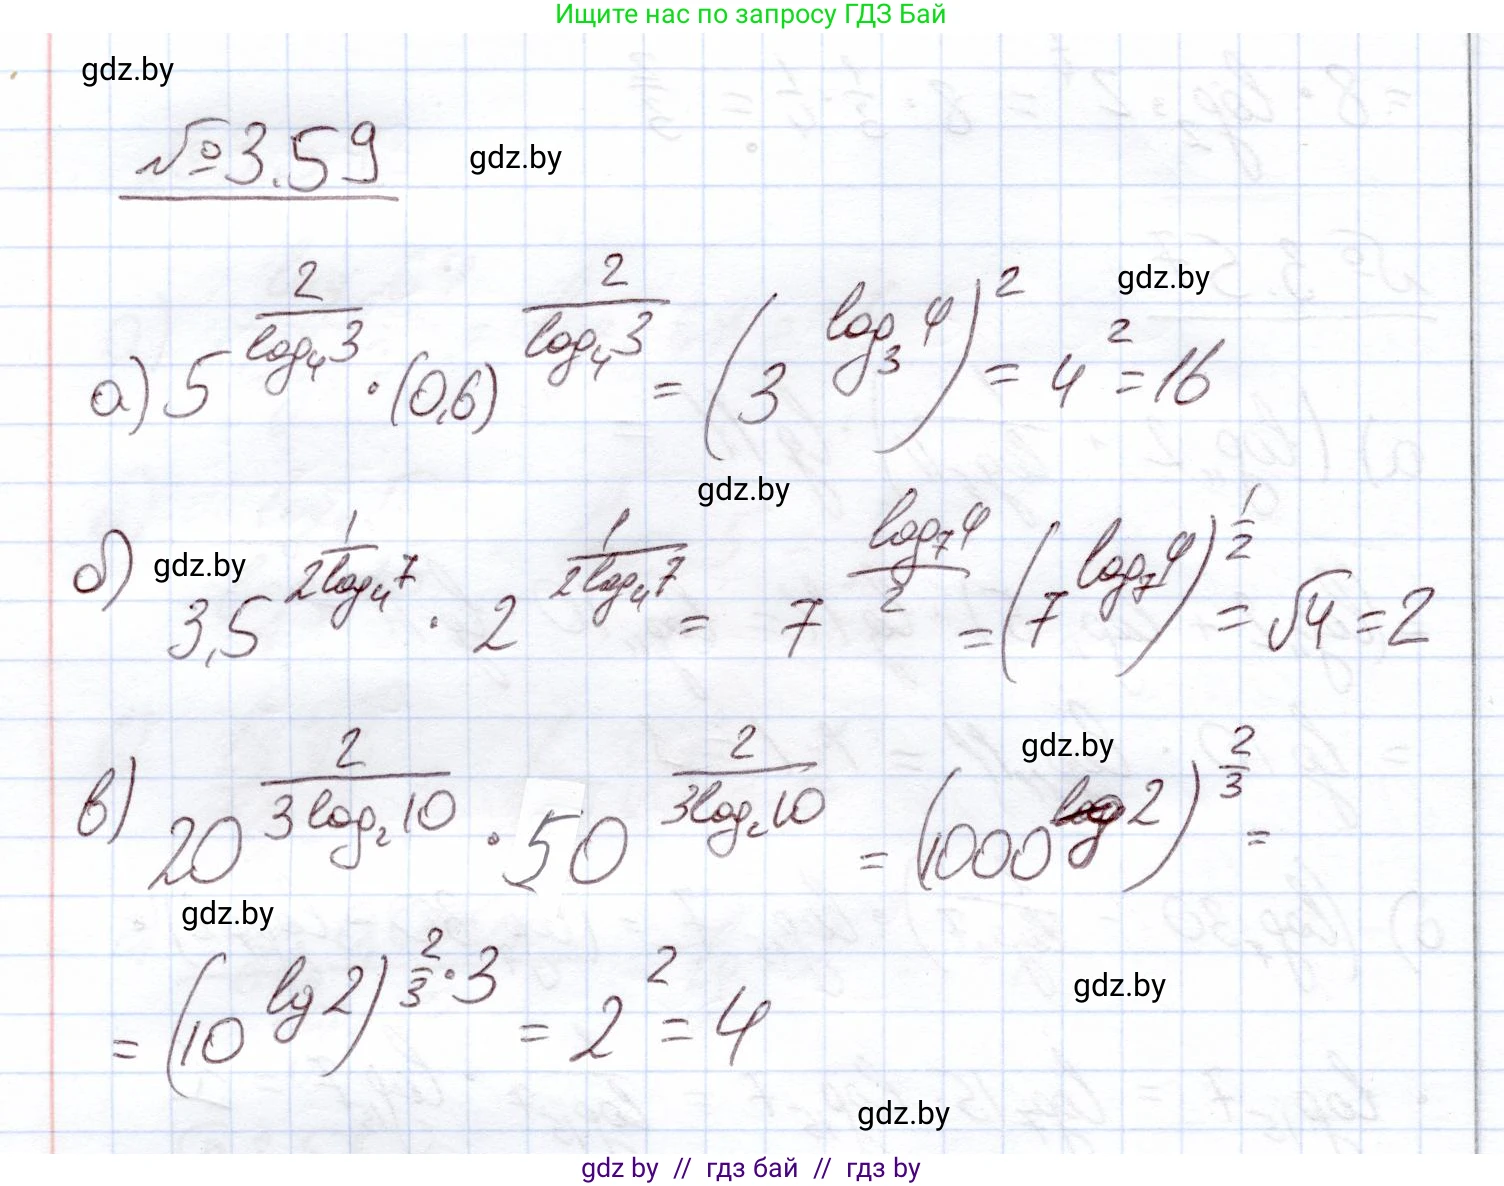 Ищите нас по запросу ГДЗ Бай
gdz.by
№3.59
gdz.by
gdz.by
а) 5^(2/log₄3) · (0,6)^(2/log₄3) = (3^(log₃4))² = 4² = 16
gdz.by
б) gdz.by
3,5^(1/(2log₄7)) · 2^(1/(2log₄7)) = 7^(log₇4/2) = (7^(log₇4))^(1/2) = √4 = 2
gdz.by
в) 20^(2/(3log₂10)) · 50^(2/(3log₂10)) = (1000^(lg2))^(2/3) =
gdz.by
= (10^(lg2))^(2/3 · 3) = 2² = 4
gdz.by
gdz.by
gdz by // гдз бай // гдз by